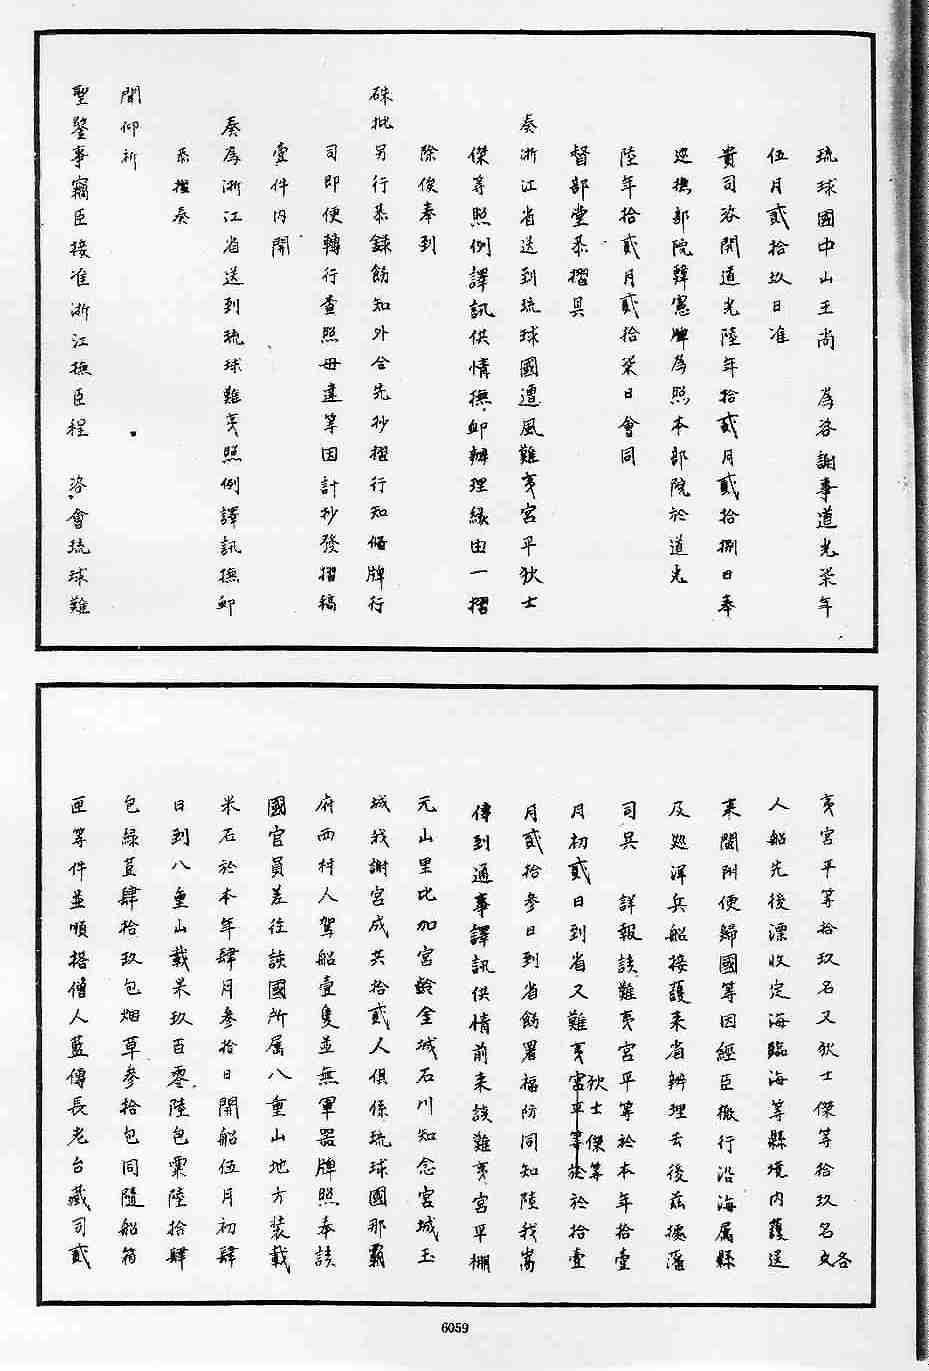 琉球國中山王尚　為咨謝事道光柒年
伍月貳拾玖日准
貴司咨開道光陸年拾貳月貳拾捌日奉
巡撫部院韓憲牌為照本部院於道光
陸年拾貳月貳拾柒日會同
督部堂恭摺具
奏浙江省送到琉球國遭風難夷宮平狄士
傑等照例譯訊供情撫卹辦理緣由一摺
除俟奉到
硃批另行恭錄飭知外合先抄摺行知備牌行
司即便轉行查照毋違等因計抄發摺稿
壹件内開
奏為浙江省送到琉球難夷照例譯訊撫卹
恭摺奏
聞仰祈
聖鑒事竊臣接准浙江撫臣程　咨會琉球難
夷宮平等拾玖名又狄士傑等拾玖名各
人船先後漂收定海臨海等縣境内護送
來閩附便歸國等因經臣檄行沿海属縣
及巡洋兵船接護來省辨理去後茲據藩
司具　詳報該難夷宮平等於本年拾壹
月初貳日到省又難夷狄士傑等於拾壹
月貳拾參日到省飭署福防同知陸我嵩
傳到通事譯訊供情前來該難夷宮平棚
元山里比加宮齡金城石川知念宮城玉
城我謝宮成共拾貳人俱係琉球國那霸
府西村人駕船壹隻並無軍器牌照奉該
國官員差往該國所属八重山地方装載
米石於本年肆月參拾日開船伍月初肆
日到八重山載米玖百零陸包粟陸拾肆
包綠荳肆拾玖包烟草參拾包同隨船箱
匣等件並順搭僧人藍傳長老台藏司貳
6059